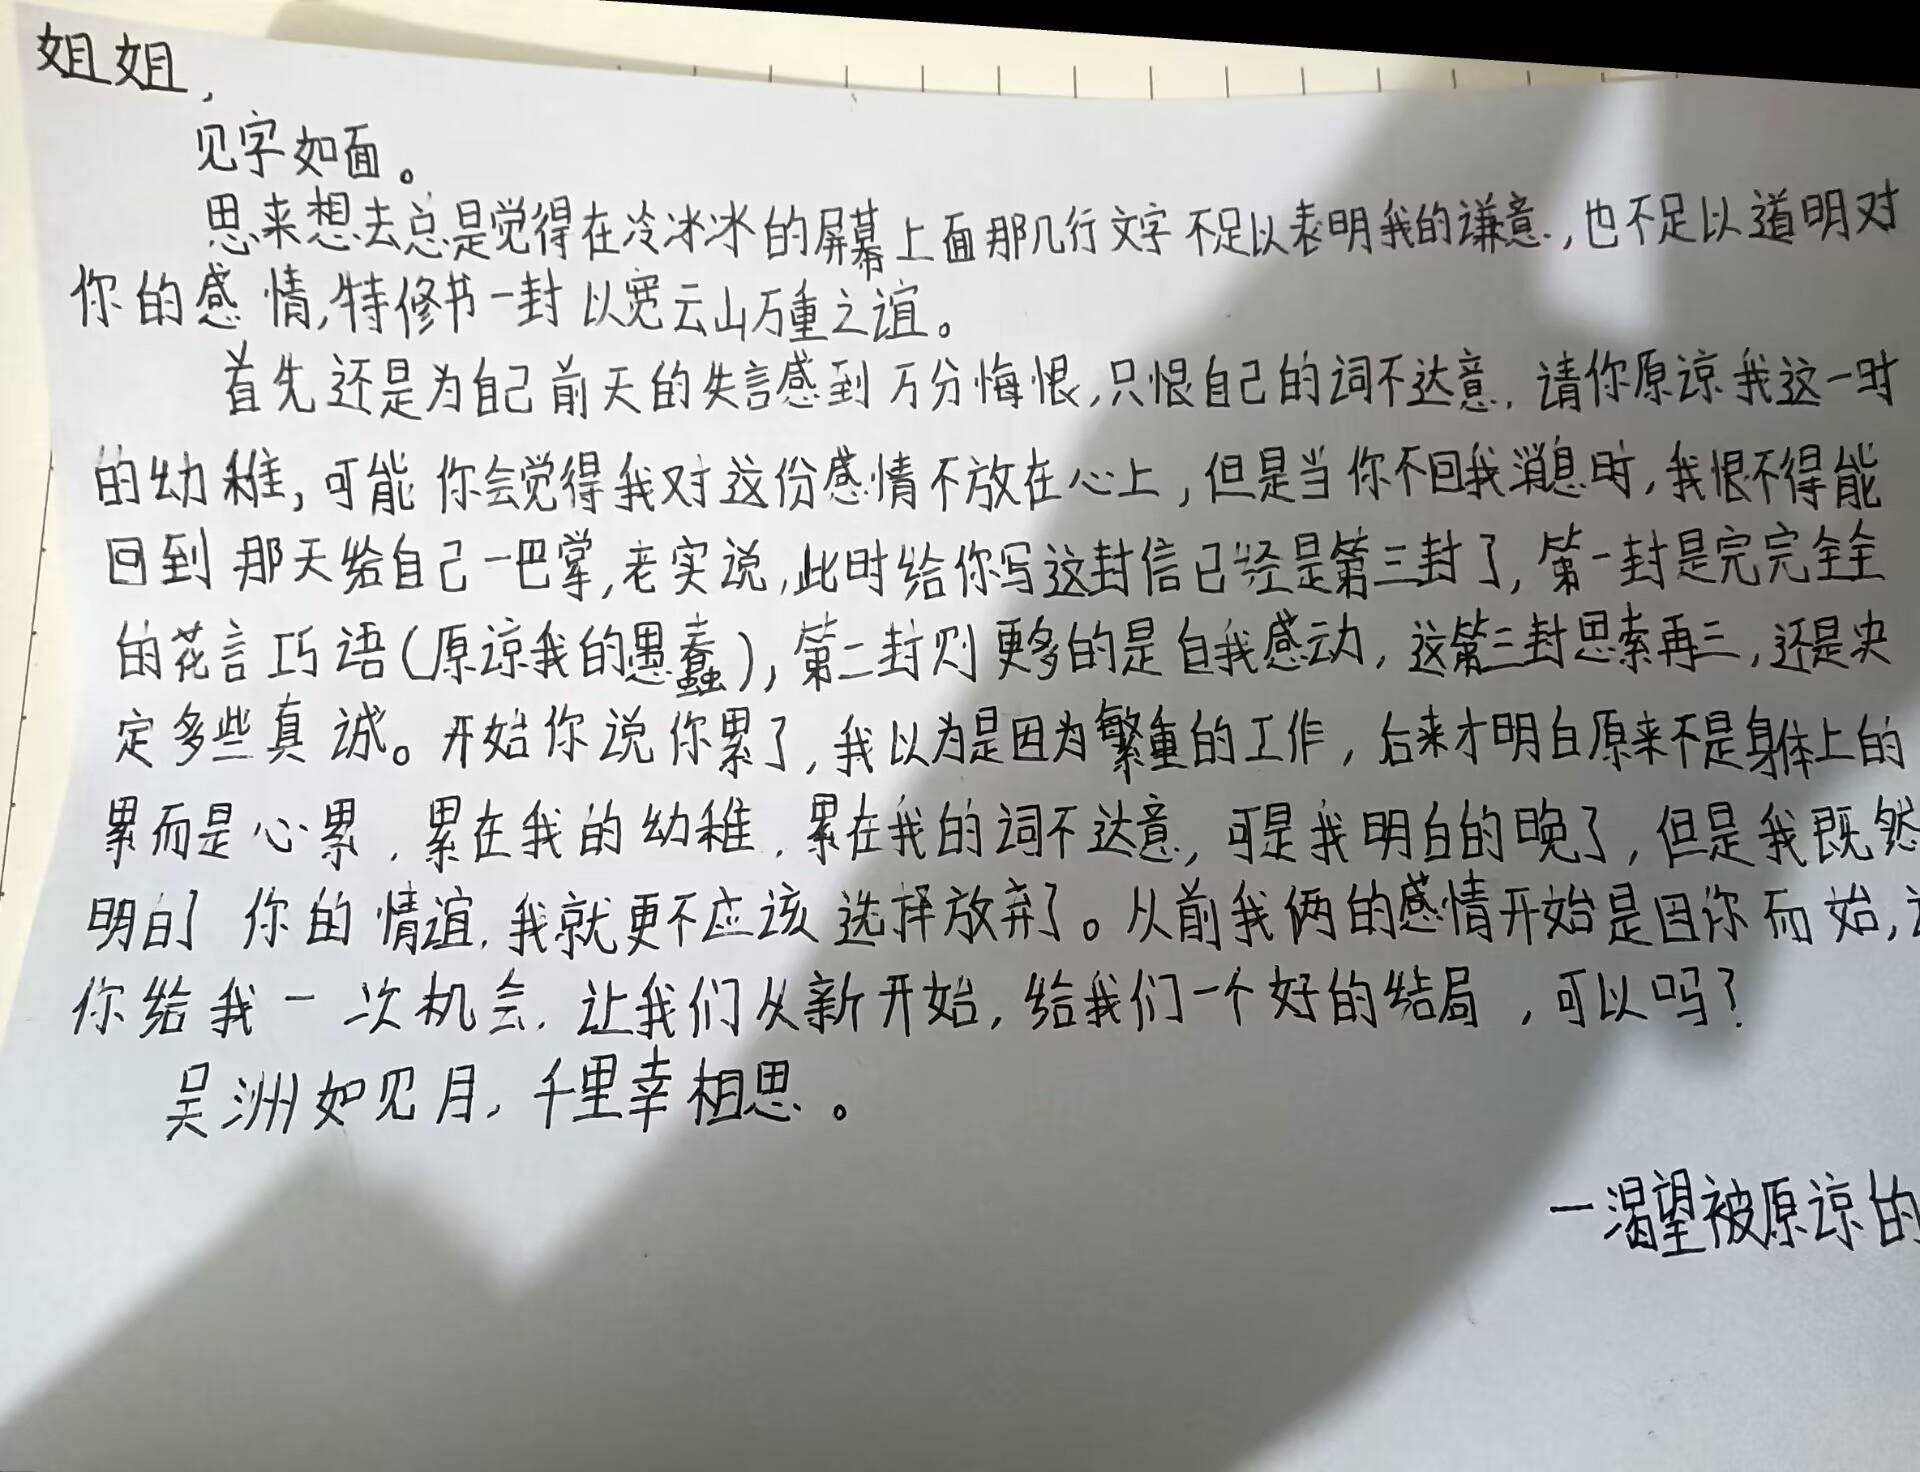 姐姐,
见字如面。
思来想去总是觉得在冷冰冰的屏幕上面那几行文字不足以表明我的谦意,也不足以道明对
你的感情,特修书一封以宽云山万重之谊。
首先还是为自己前天的失言感到万分悔恨,只恨自己的词不达意.请你原谅我这一时
的幼稚,可能你会觉得我对这份感情不放在心上,但是当你不回我消息时,我恨不得能
回到那天给自己一巴掌,老实说,此时给你写这封信已经是第三封了,第一封是完完全全
的花言巧语(原谅我的愚蠢),第二封则更多的是自我感动,这第三封思索再三,还是决
定多些真诚。开始你说你累了,我以为是因为繁重的工作,后来才明白原来不是身体上的
累而是心累,累在我的幼稚,累在我的词不达意,可是我明白的晚了,但是我既然
明白了你的情谊,我就更不应该选择放弃了。从前我俩的感情开始是因你而始,
你给我一次机会.让我们从新开始,给我们一个好的结局,可以吗?
吴洲如见月,千里幸相思。
一渴望被原谅的